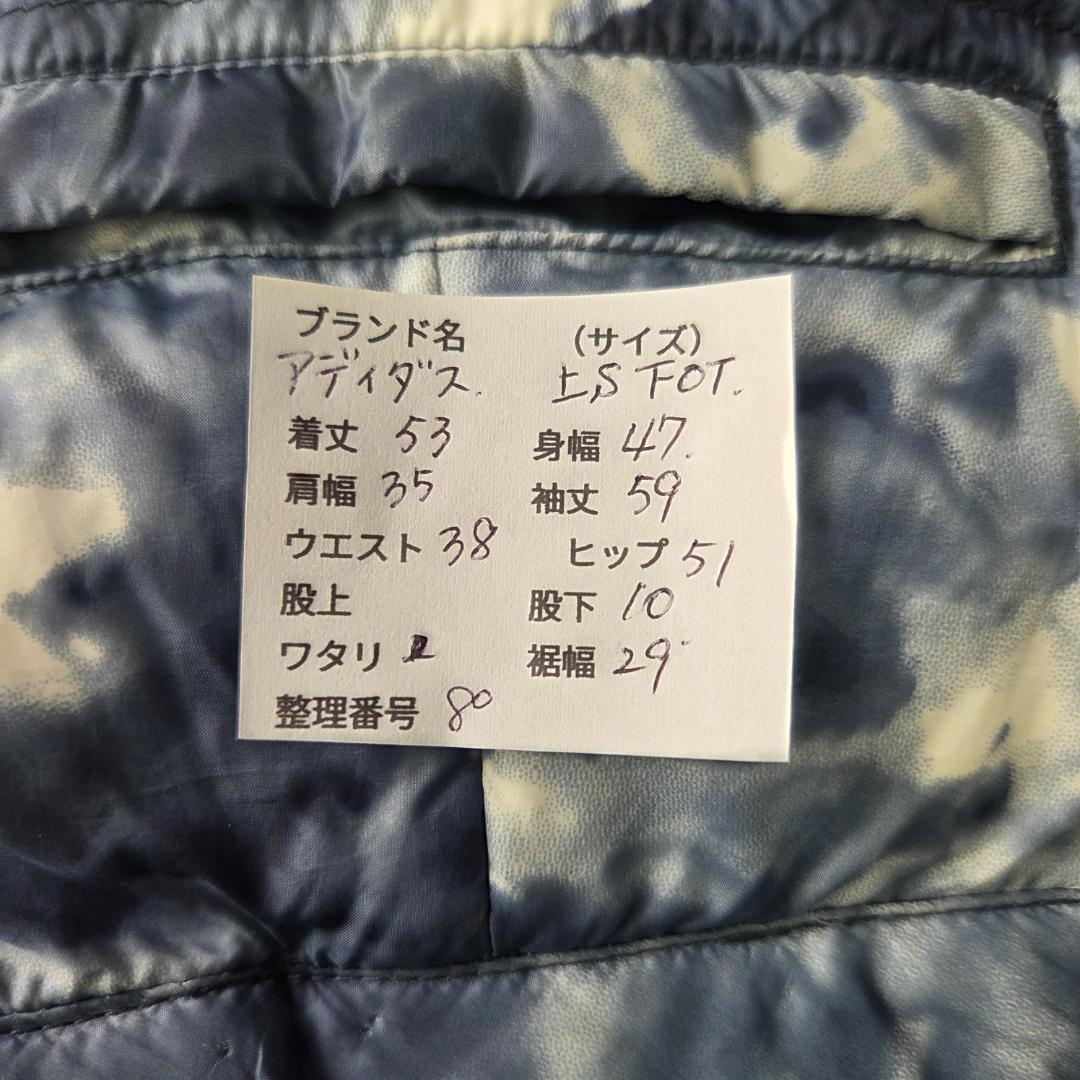 ブランド名 (サイズ)
アディダス. 上S下OT.
着丈 53 身幅 47.
肩幅 35 袖丈 59
ウエスト 38 ヒップ 51
股上 股下 10
ワタリ 裾幅 29
整理番号 80